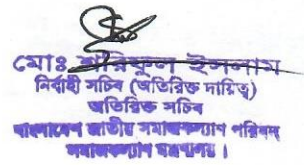 মোঃ শরিফুল ইসলাম
নির্বাহী সচিব (অতিরিক্ত দায়িত্ব)
অতিরিক্ত সচিব
বাংলাদেশ জাতীয় সমাজকল্যাণ পরিষদ
সমাজকল্যাণ মন্ত্রণালয়।